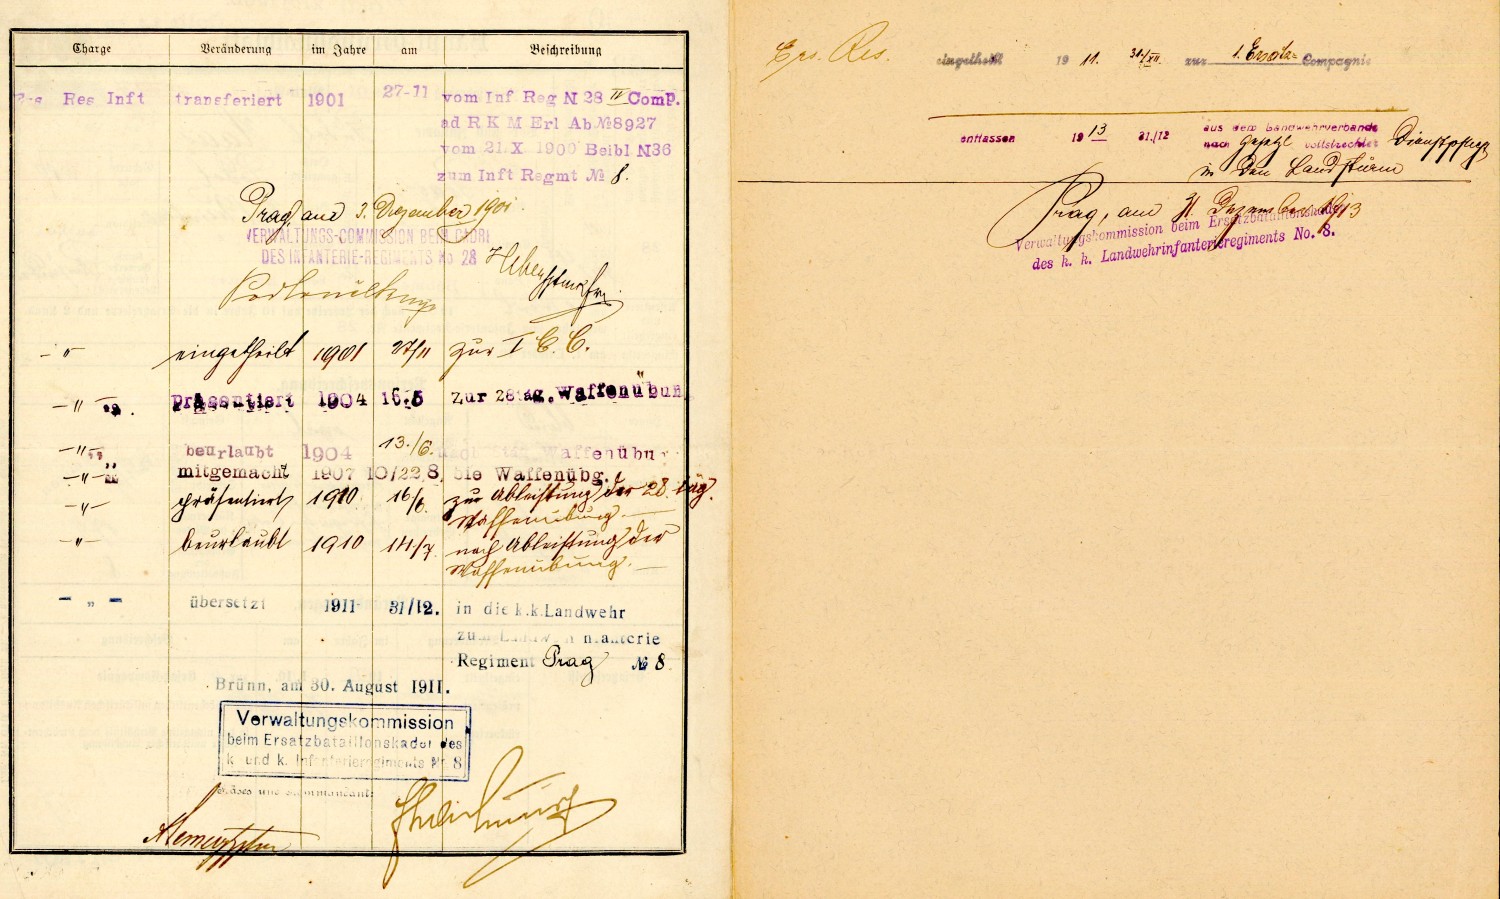 Charge Veränderung im Jahre am Beschreibung
Res Inft transferiert 1901 27-11 vom Inf Reg N 28 IV Comp.
ad R K M Erl Ab №8927
vom 21.X 1900 Beibl N36
zum Inft Regmt № 8.
Prag, am 3. Dezember 1901.
VERWALTUNGS-COMMISSION BEIM CADRE
DES INFANTERIE-REGIMENTS No 28
-"- eingetheilt 1901 27/11 zur I E. C.
-"- präsentiert 1904 16.5 zur 28täg. Waffenübun
-"- beurlaubt 1904 13./6. Waffenübu
-"- mitgemacht 1907 10/22,8 die Waffenübg.
-"- präsentiert 1910 16/6. zur Ableistung der 28. täg.
Waffenübung.—
-"- beurlaubt 1910 14/7. nach Ableistung der
Waffenübung.—
-"- übersetzt 1911 31/12. in die k.k. Landwehr
zum Landwehr Infanterie
Regiment Prag № 8.
Brünn, am 30. August 1911.
Verwaltungskommission
beim Ersatzbataillonskader des
k. und k. Infanterieregiments Nr. 8
Präses und Kommandant:
Ers. Res. eingeteilt 1911. 31./XII. zur 1. Ersatz- Compagnie
entlassen 1913 31./12 aus dem Landwehrverbande
nach gesetzl vollstreckter Dienstpflicht
in den Landsturm
Prag, am 31. Dezember 1913
Verwaltungskommission beim Ersatzbataillonskader
des k. k. Landwehrinfanterieregiments No. 8.